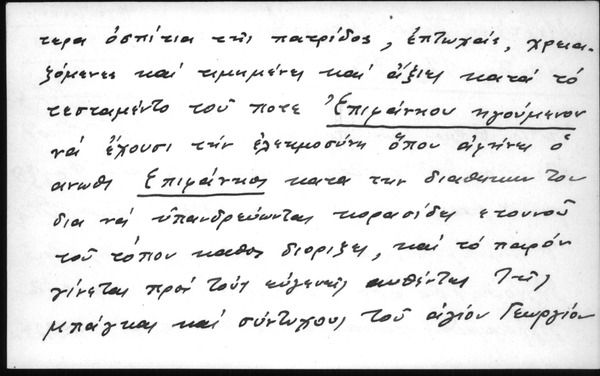 τερα ὀσπίτια τῆς πατρίδος, ἐπτωχαίς, χρεια-
ζόμενες καί τιμημένες καί ἄξιες κατά τό
τεσταμέντο τοῦ ποτε Ἐπιφάνιου ηγούμενου
νά ἔχουσι τήν ἐλεημοσύνη ὅπου ἀφήνει ὁ
ανωθε Επιφάνιος κατα την διαθηκην του
δια νά ὑπανδρεύωνται κορασίδες ετουνοῦ
τοῦ τόπου καθώς διοριζει, καί τό παρόν
γίνεται πρός τούς εὐγενεῖς αυθέντες τῆς
μπάγκας καί σύντυχους τοῦ ἁγίου Γεωργίου